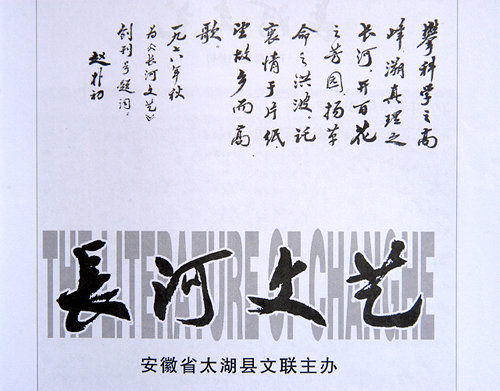 攀科学之高
峰,溯真理之
长河。开百花
之芳园,扬革
命之洪波。託
衷情于片纸,
望故乡而高
歌。
一九七八年秋
为《长河文艺》
创刊号题词
赵朴初
THE LITERATURE OF CHANGHE
長河文艺
安徽省太湖县文联主办